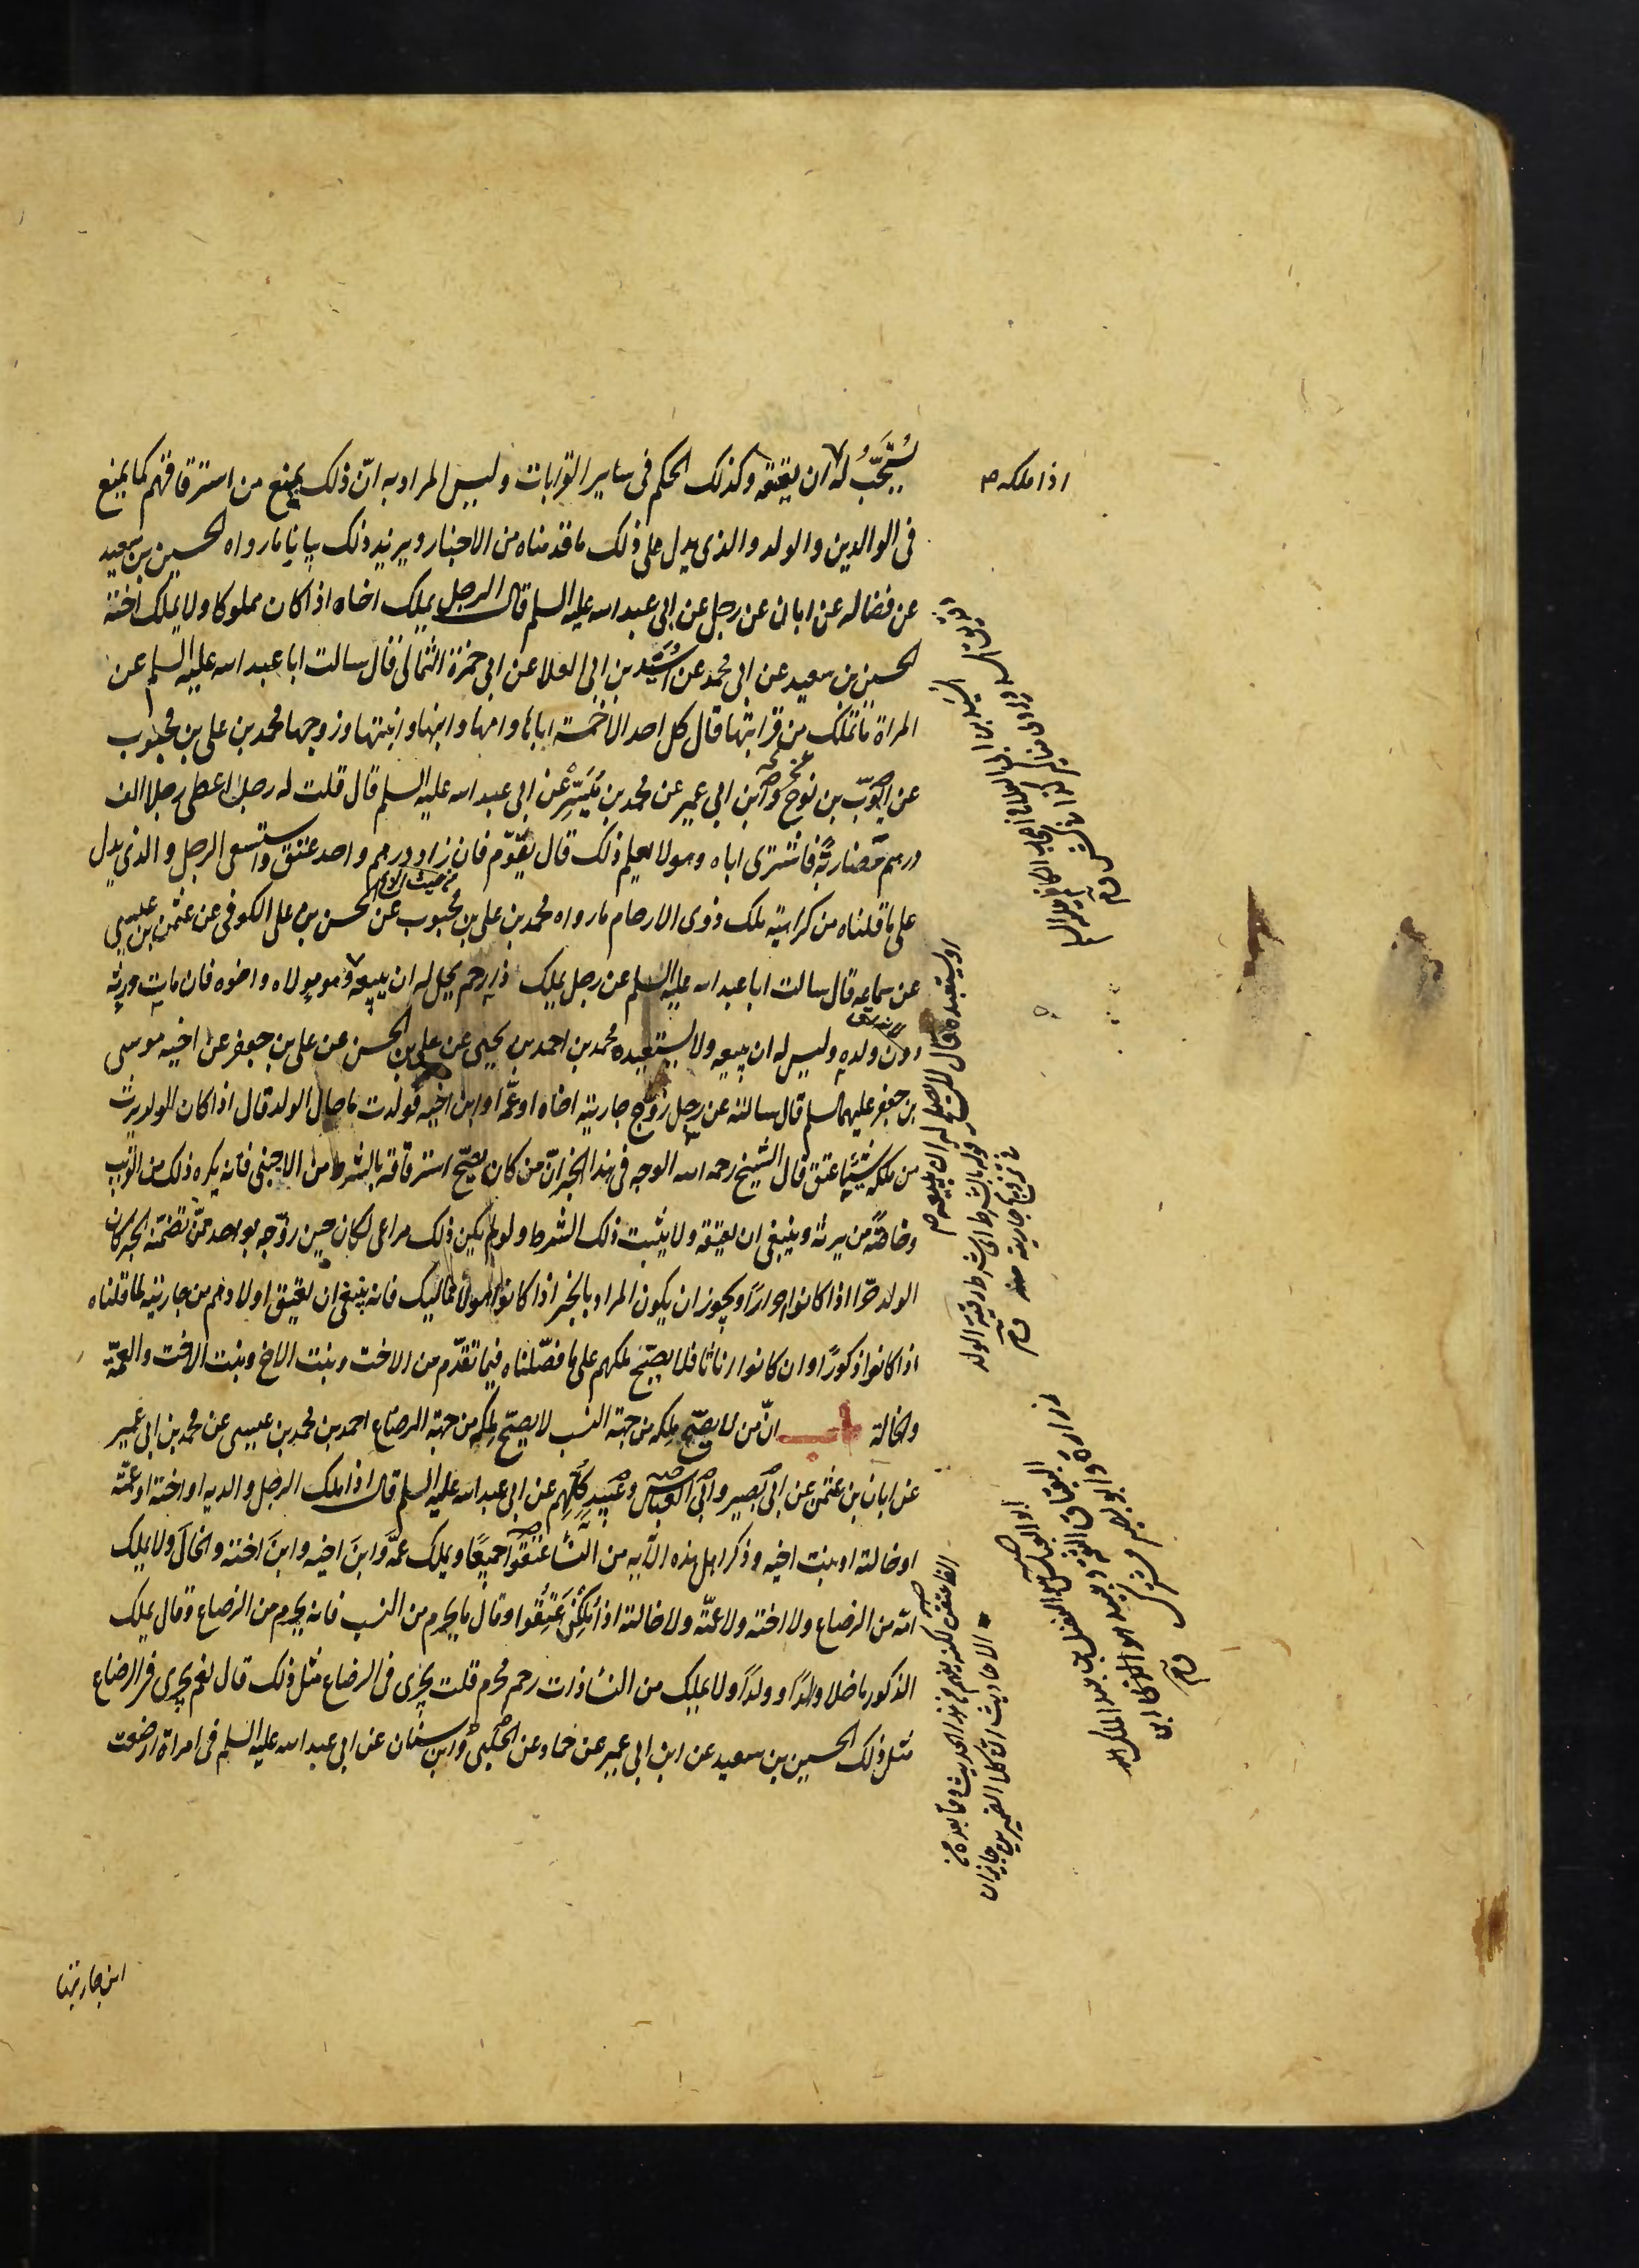 يُسْتَحَبُّ له ان يعتقه وكذلك الحكم فى ساير القرابات وليس المراد به انّ ذلك يمنع من استرقاقهم كما يمنع
اذا ملكه
فى الوالدين والولد والذى يدل على ذلك ما قدمناه من الاخبار ويزيد ذلك بيانا ما رواه الحسين بن سعيد
عن فضاله عن ابان عن رجل عن ابى عبد الله عليه السلم قال الرجل يملك اخاه اذا كان مملوكا ولا يملك اخته
الحسين بن سعيد عن ابى محمد عن اسد بن ابى العلا عن ابى حمزة الثمالى قال سالت ابا عبد الله عليه السلم عن
المراة ما تملك من قرابتها قال كل احد الا خمسة اباها وامها وابنها وابنتها وزوجها محمد بن على بن محبوب
عن ايوب بن نوح عن ابن ابى عمير عن محمد بن مُيَسِّر عن ابى عبد الله عليه السلم قال قلت له رجل اعطى رجلا الف
درهم مضاربة فاشترى اباه وهو لا يعلم ذلك قال يقوّم فان زاد درهم واحد عتق واستسعى الرجل والذى يدل
على ما قلناه من كراهية ملك ذوى الارحام ما رواه محمد بن على بن محبوب عن الحسن بن على الكوفى عن عثمن بن عيسى
عن سماعه قال سالت ابا عبد الله عليه السلم عن رجل يملك ذا رحم يحل له ان يبيعه
او يستعبده قال لا يصلح له ان يبيعه
وهو مولاه واخوه فان مات ورثه
دون ولده وليس له ان يبيعه ولا يستعبده محمد بن احمد بن يحيى عن على بن الحسن عن على بن جعفر عن اخيه موسى
بن جعفر عليهما السلم قال سالته عن رجل زوّج جاريته اخاه او عمّه او ابن اخيه فولدت ما حال الولد قال اذا كان الولد يرث
من ملكه شيئا عتق قال الشيخ رحمه الله الوجه فى هذا الخبر انّ من كان يصحّ استرقاقه بالشرط من الاجنبى فانه يكره ذلك من القريب
وخاصّة من يرثه وينبغى ان يعتقه ولا يثبت ذلك الشرط ولو لم يكن ذلك مراعى لكان حين زوّجه بواحد ممّن تضمّنه الخبر كان
الولد حرّا اذا كانوا احرارا ويجوز ان يكون المراد بالخبر اذا كانوا هؤلاء مماليك فانه ينبغى ان يعتق اولادهم من جاريته لما قلناه
اذا كانوا ذكورًا وان كانوا اناثا فلا يصحّ ملكهم على ما فصّلناه فيما تقدّم من الاخت وبنت الاخ وبنت الاخت والعمّة
والخالة باب انّ من لا يصحّ ملكه من جهة النسب لا يصحّ ملكه من جهة الرضاع احمد بن محمد بن عيسى عن محمد بن ابى عمير
عن ابان بن عثمن عن ابى بصير وابى العباس وعبيد كلّهم عن ابى عبد الله عليه السلم قال اذا ملك الرجل والديه او اخته او عمّته
او خالته او بنت اخيه وذكر اهل هذه الآيه من النسا عتقوا جميعًا ويملك عمَّه وابنَ اخيه وابنَ اخته والخالَ ولا يملك
امّه من الرضاع ولا اخته ولا عمّته ولا خالته اذا ملكن عَتَقُوا وقال ما يحرم من النسب فانه يحرم من الرضاع وقال يملك
الذكور ما خلا والدًا وولدًا ولا يملك من النسا ذات رحم محرم قلت يجرى فى الرضاع مثل ذلك قال نعم يجرى فى الرضاع
مثل ذلك الحسين بن سعيد عن ابن ابى عمير عن حماد عن الحلبى وابن سنان عن ابى عبد الله عليه السلم فى امراة ارضعت
ابن جاريتها
قوله بالشرط اى بشرط رقية الولد
فى تزويج جاريته
ابو العباس الفضل بن عبد الملك
البقباق الثقة وعبيد هو ابن
زرارة وابو بصير مشترك
الاحاديث انّ كلا الضميرين جايزان